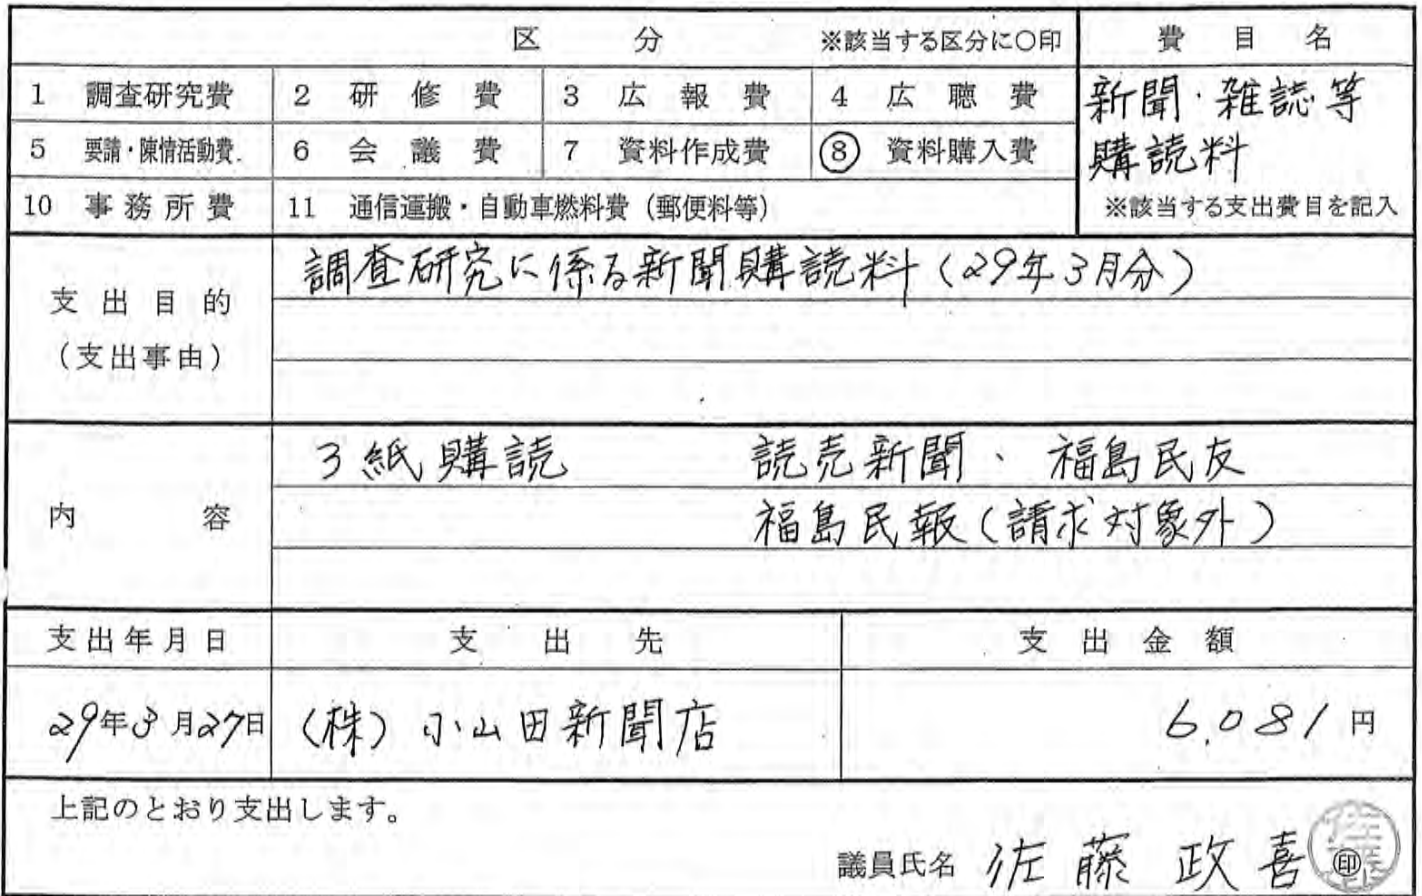 区 分 ※該当する区分に○印 費目名
1 調査研究費 2 研修費 3 広報費 4 広聴費 新聞・雑誌等
5 要請・陳情活動費 6 会議費 7 資料作成費 ⑧ 資料購入費 購読料
10 事務所費 11 通信運搬・自動車燃料費(郵便料等) ※該当する支出費目を記入
支出目的 調査研究に係る新聞購読料(29年3月分)
(支出事由)
3紙購読 読売新聞、福島民友
内容 福島民報(請求対象外)
支出年月日 支出先 支出金額
29年3月27日 (株)小山田新聞店 6,081円
上記のとおり支出します。
議員氏名 佐藤政喜 ㊞